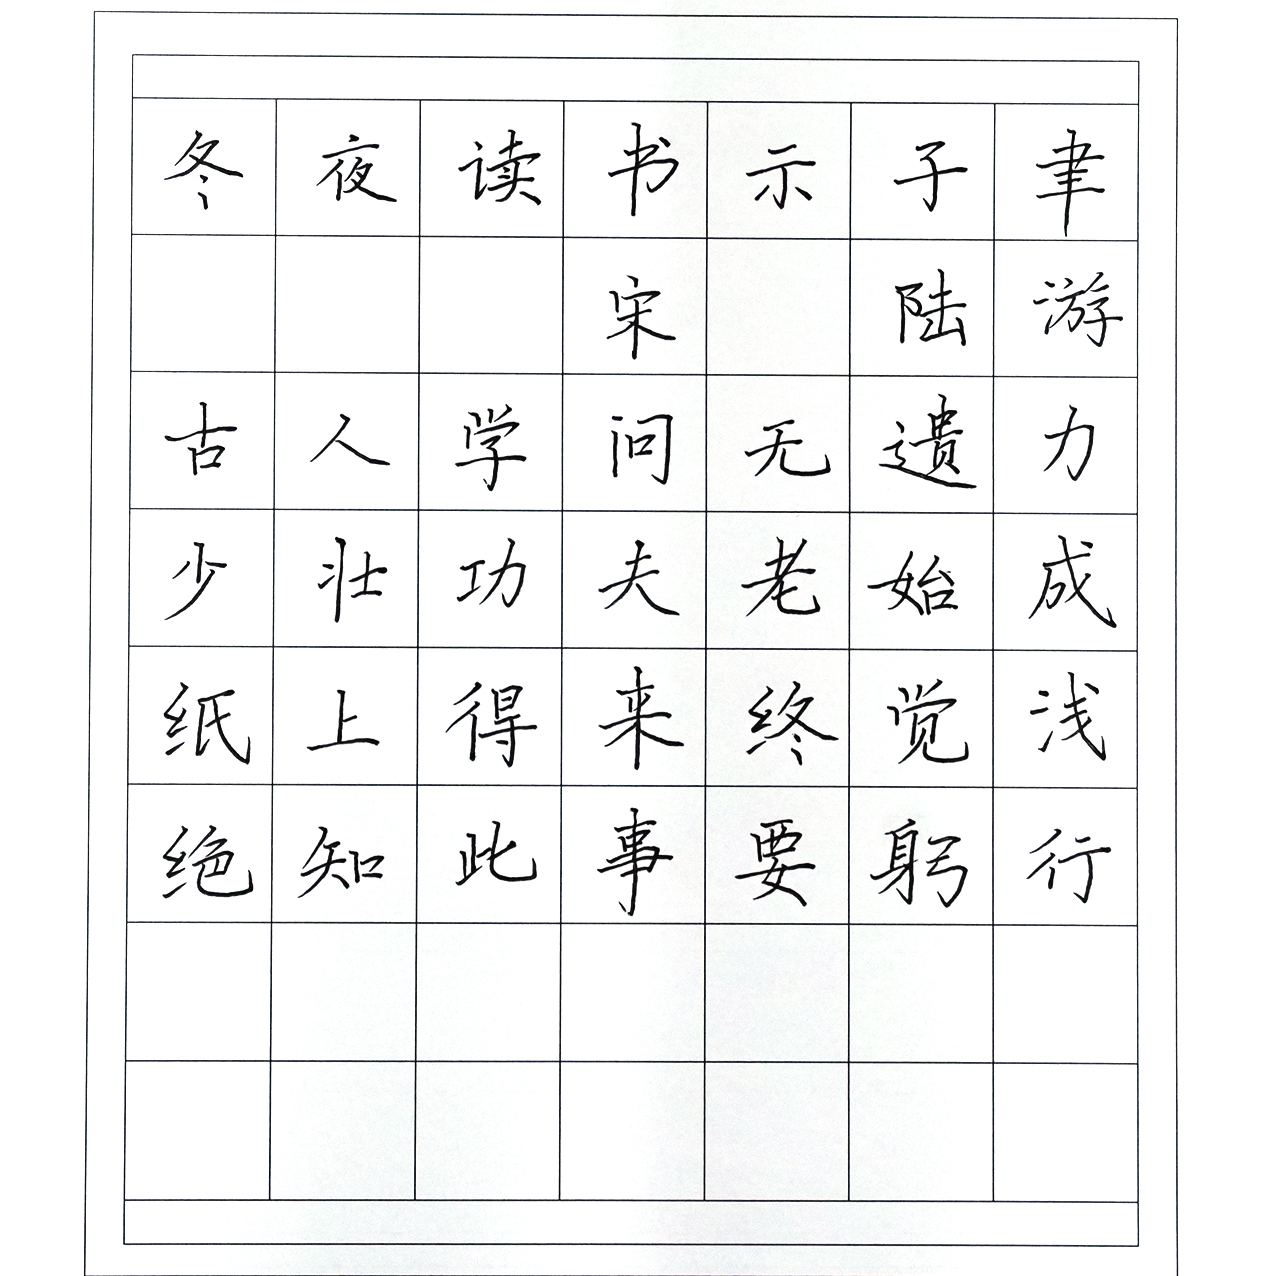 冬夜读书示子聿
宋 陆游
古人学问无遗力
少壮功夫老始成
纸上得来终觉浅
绝知此事要躬行